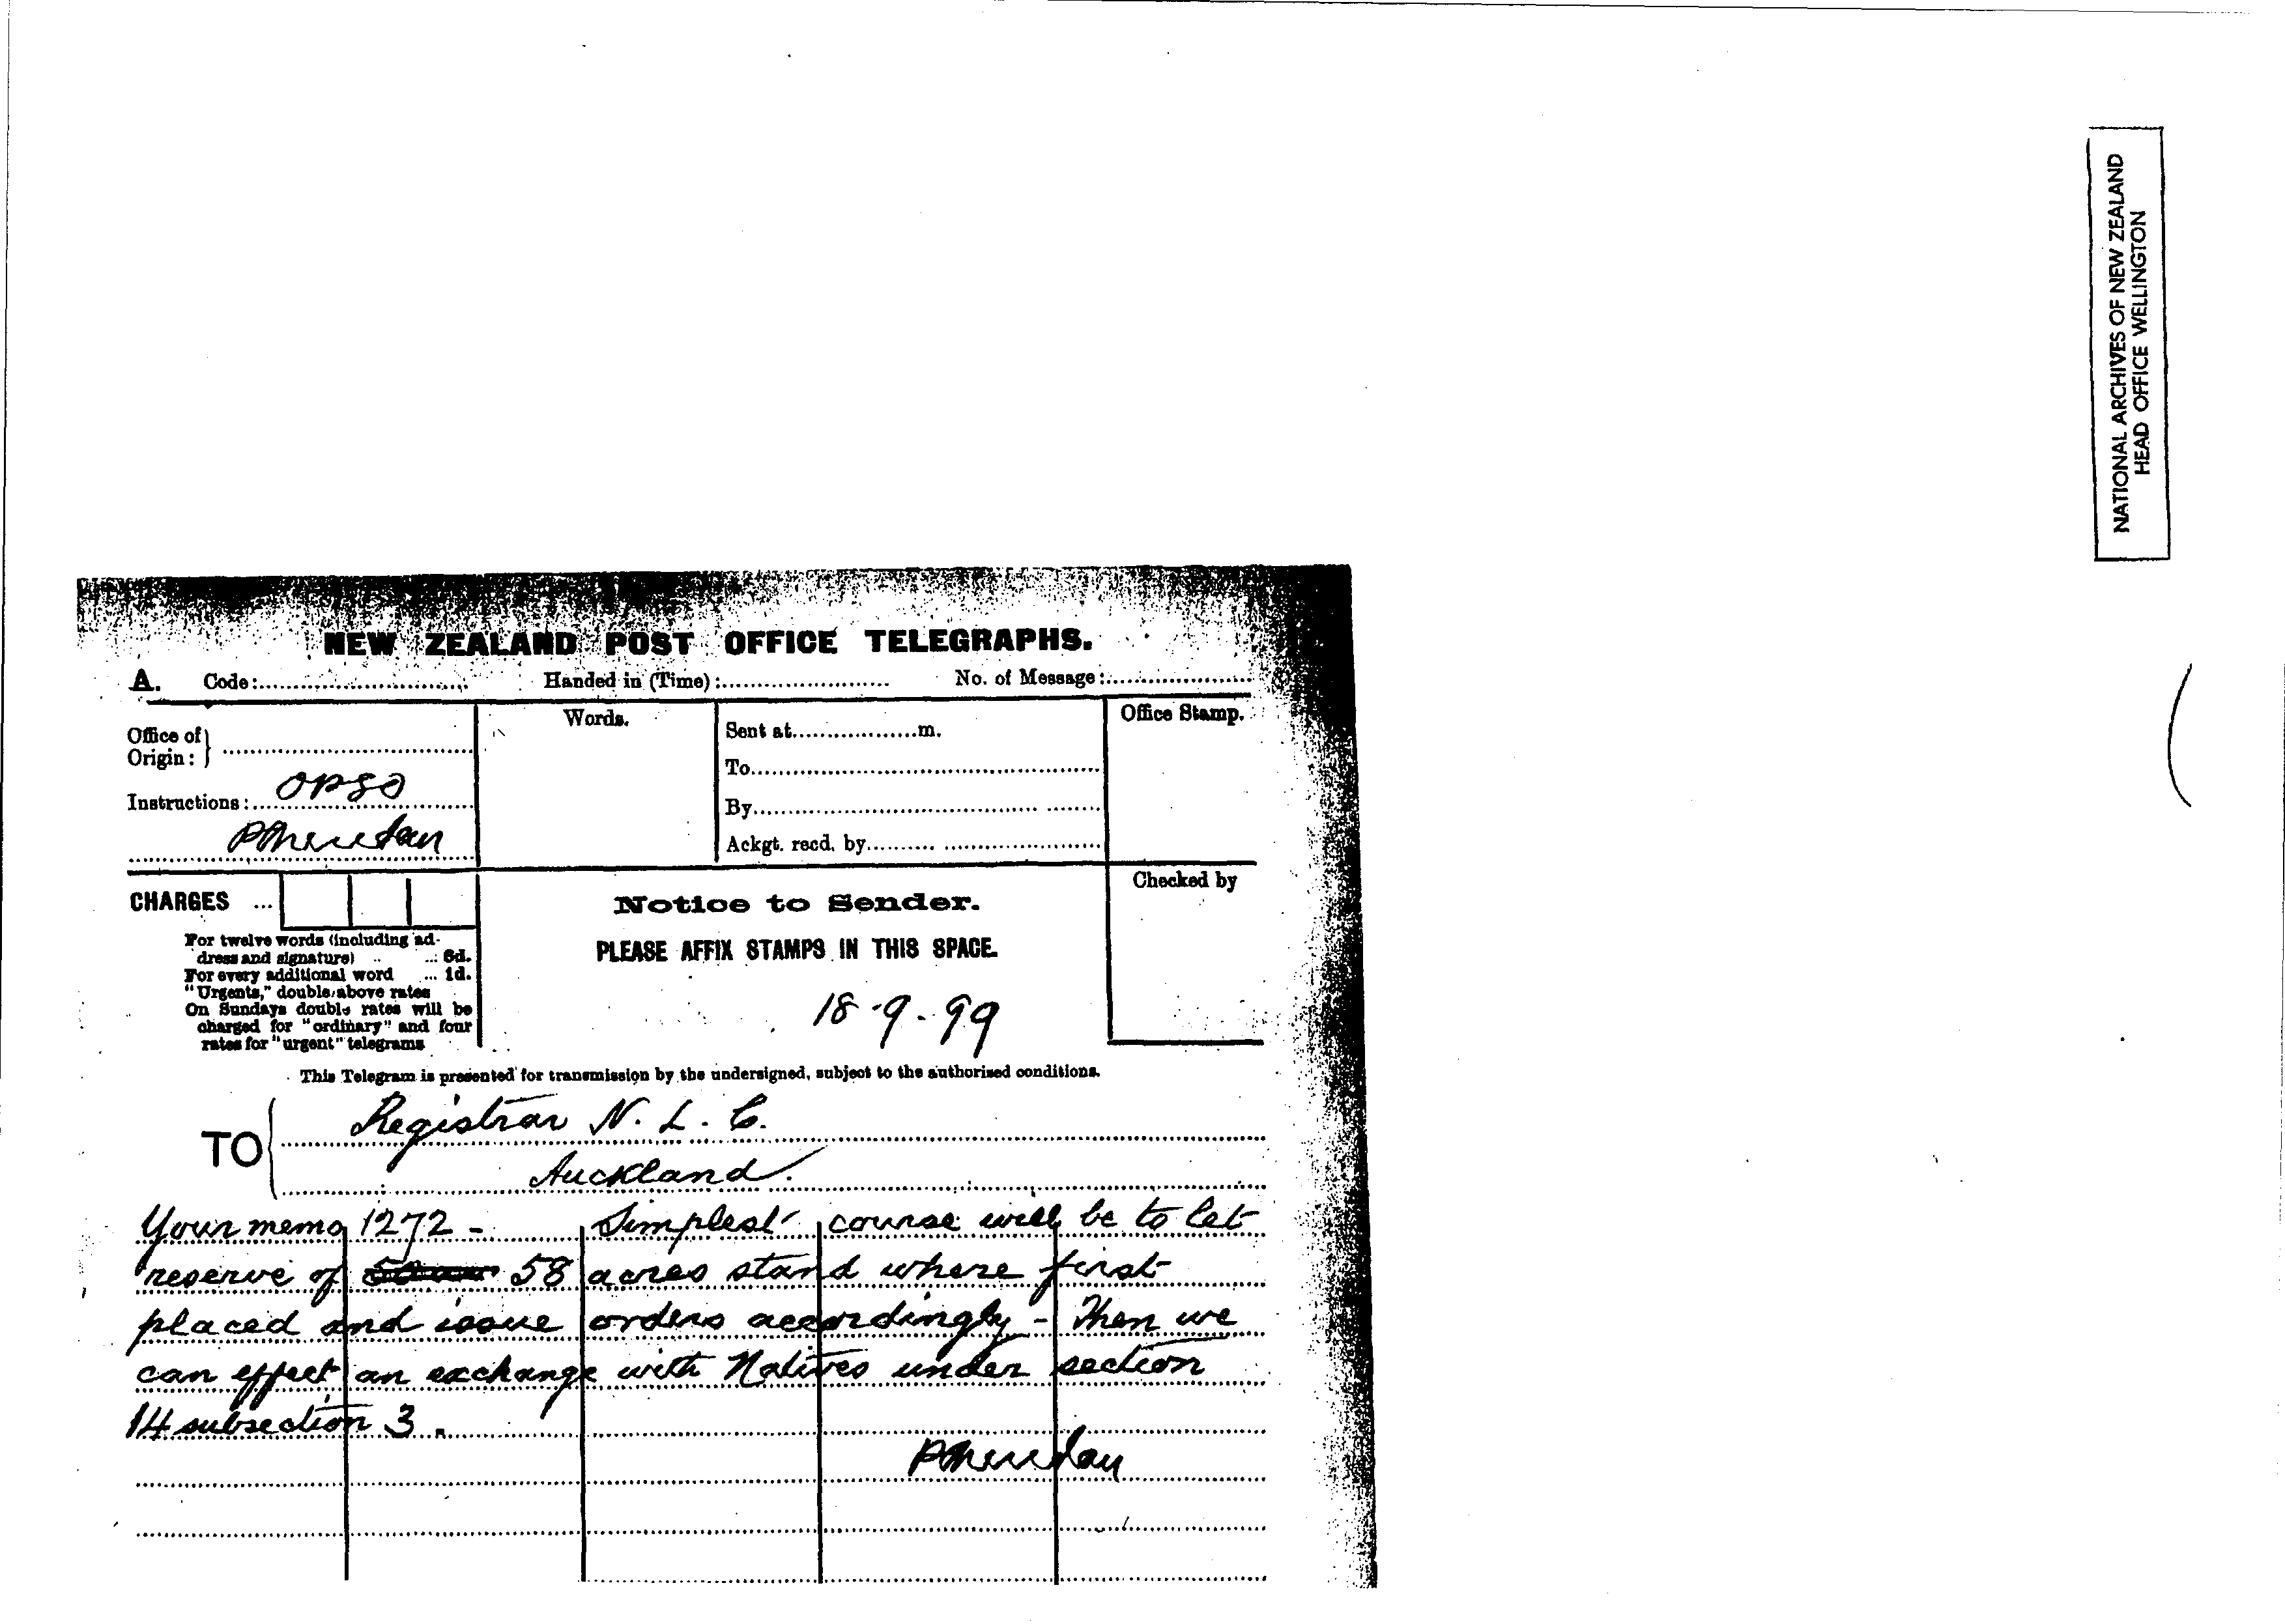 NATIONAL ARCHIVES OF NEW ZEALAND
HEAD OFFICE WELLINGTON
NEW ZEALAND POST OFFICE TELEGRAPHS.
A. Code: Handed in (Time): No. of Message:
Office of Origin:
Words.
Sent at m.
To
By
Ackgt. recd. by
Office Stamp.
Instructions: OPSO
PSheridan
CHARGES ...
For twelve words (including ad-
dress and signature) .. ... 6d.
For every additional word ... 1d.
"Urgents," double above rates
On Sundays double rates will be
charged for "ordinary" and four
rates for "urgent" telegrams
Notice to Sender.
PLEASE AFFIX STAMPS IN THIS SPACE.
18-9-99
Checked by
This Telegram is presented for transmission by the undersigned, subject to the authorised conditions.
TO Registrar N. L. C.
Auckland.
Your memo 1272 - Simplest course will be to let
reserve of 58 acres stand where first
placed and issue orders accordingly - Then we
can effect an exchange with Natives under section
14 subsection 3.
PSheridan